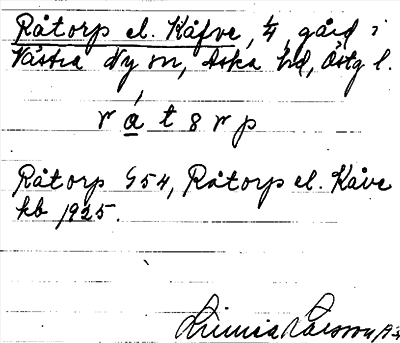 Råtorp el. Kåfve, 1/4, gård i
Västra Ny sn, Aska hd, Östg l.
råt8rp
Råtorp G54, Råtorp el. Kåve
kb 1925.
Linnéa Larsson